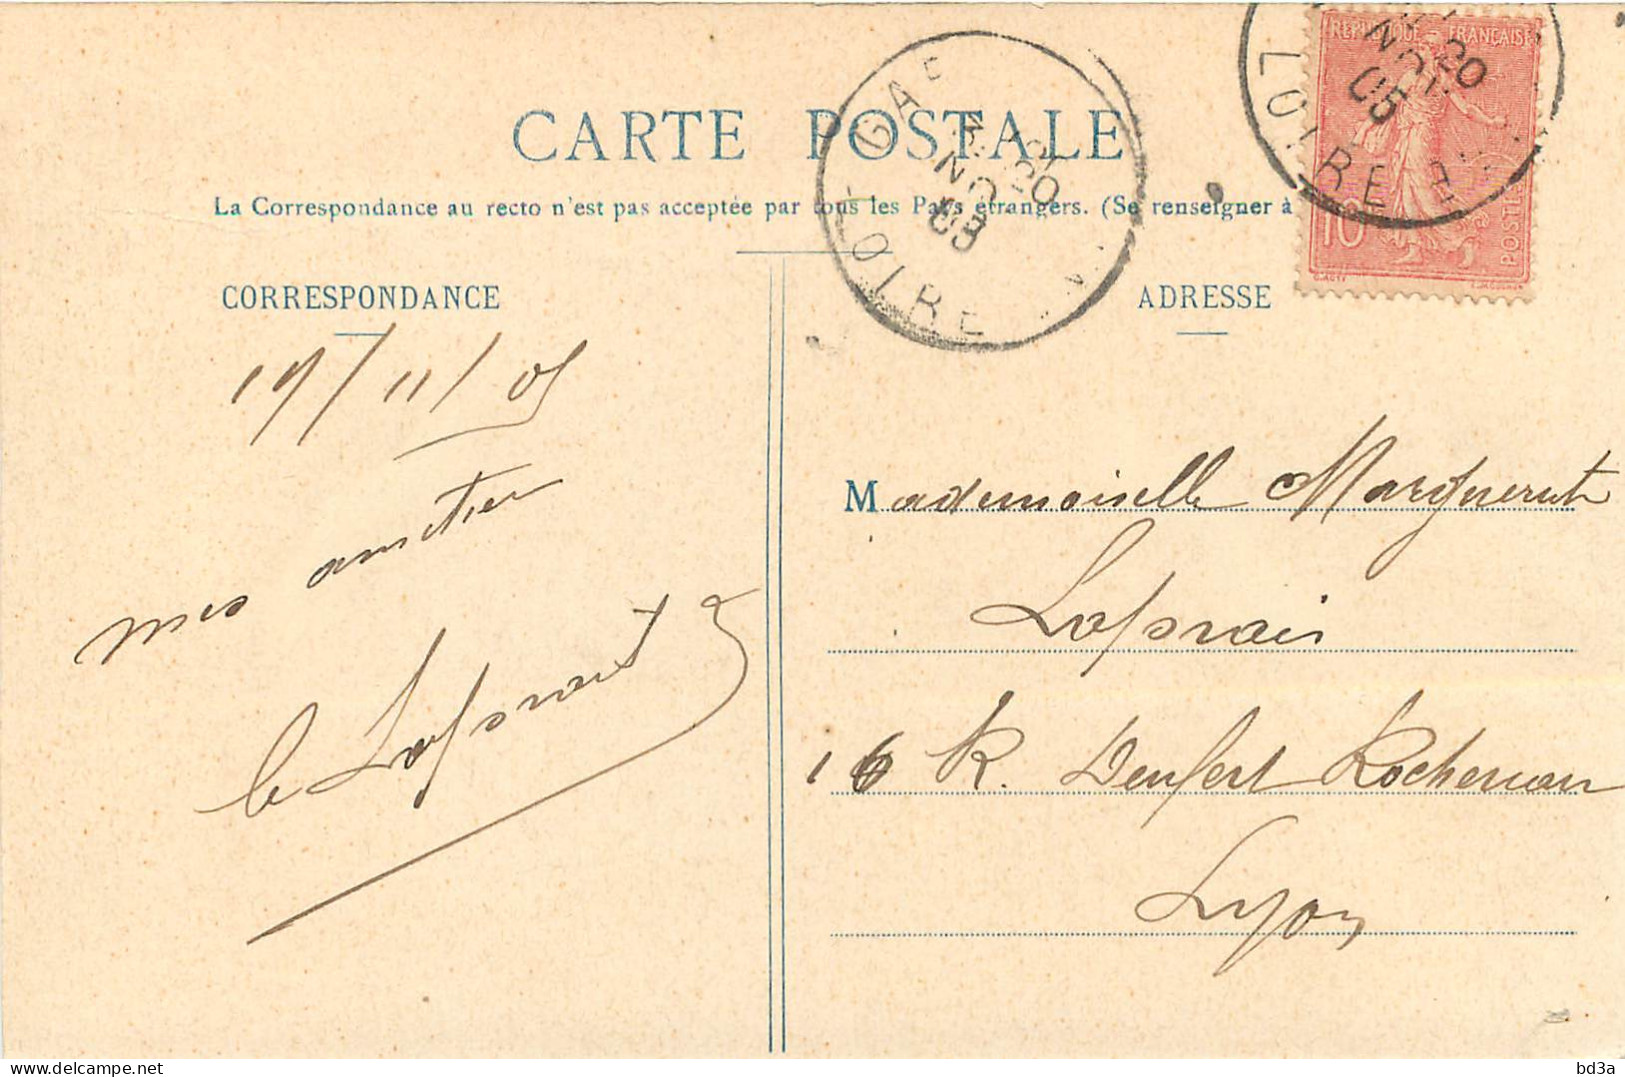 CARTE POSTALE
La Correspondance au recto n'est pas acceptée par tous les Pays étrangers. (Se renseigner à
CORRESPONDANCE
ADRESSE
RÉPUBLIQUE FRANÇAISE
10
POSTES
LOIRE
20
05
GA
LOIRE
20
19/11/05
mes amitiés
Mademoiselle Marguerite
16 R. Denfert Rochereau
Lyon
bd3a